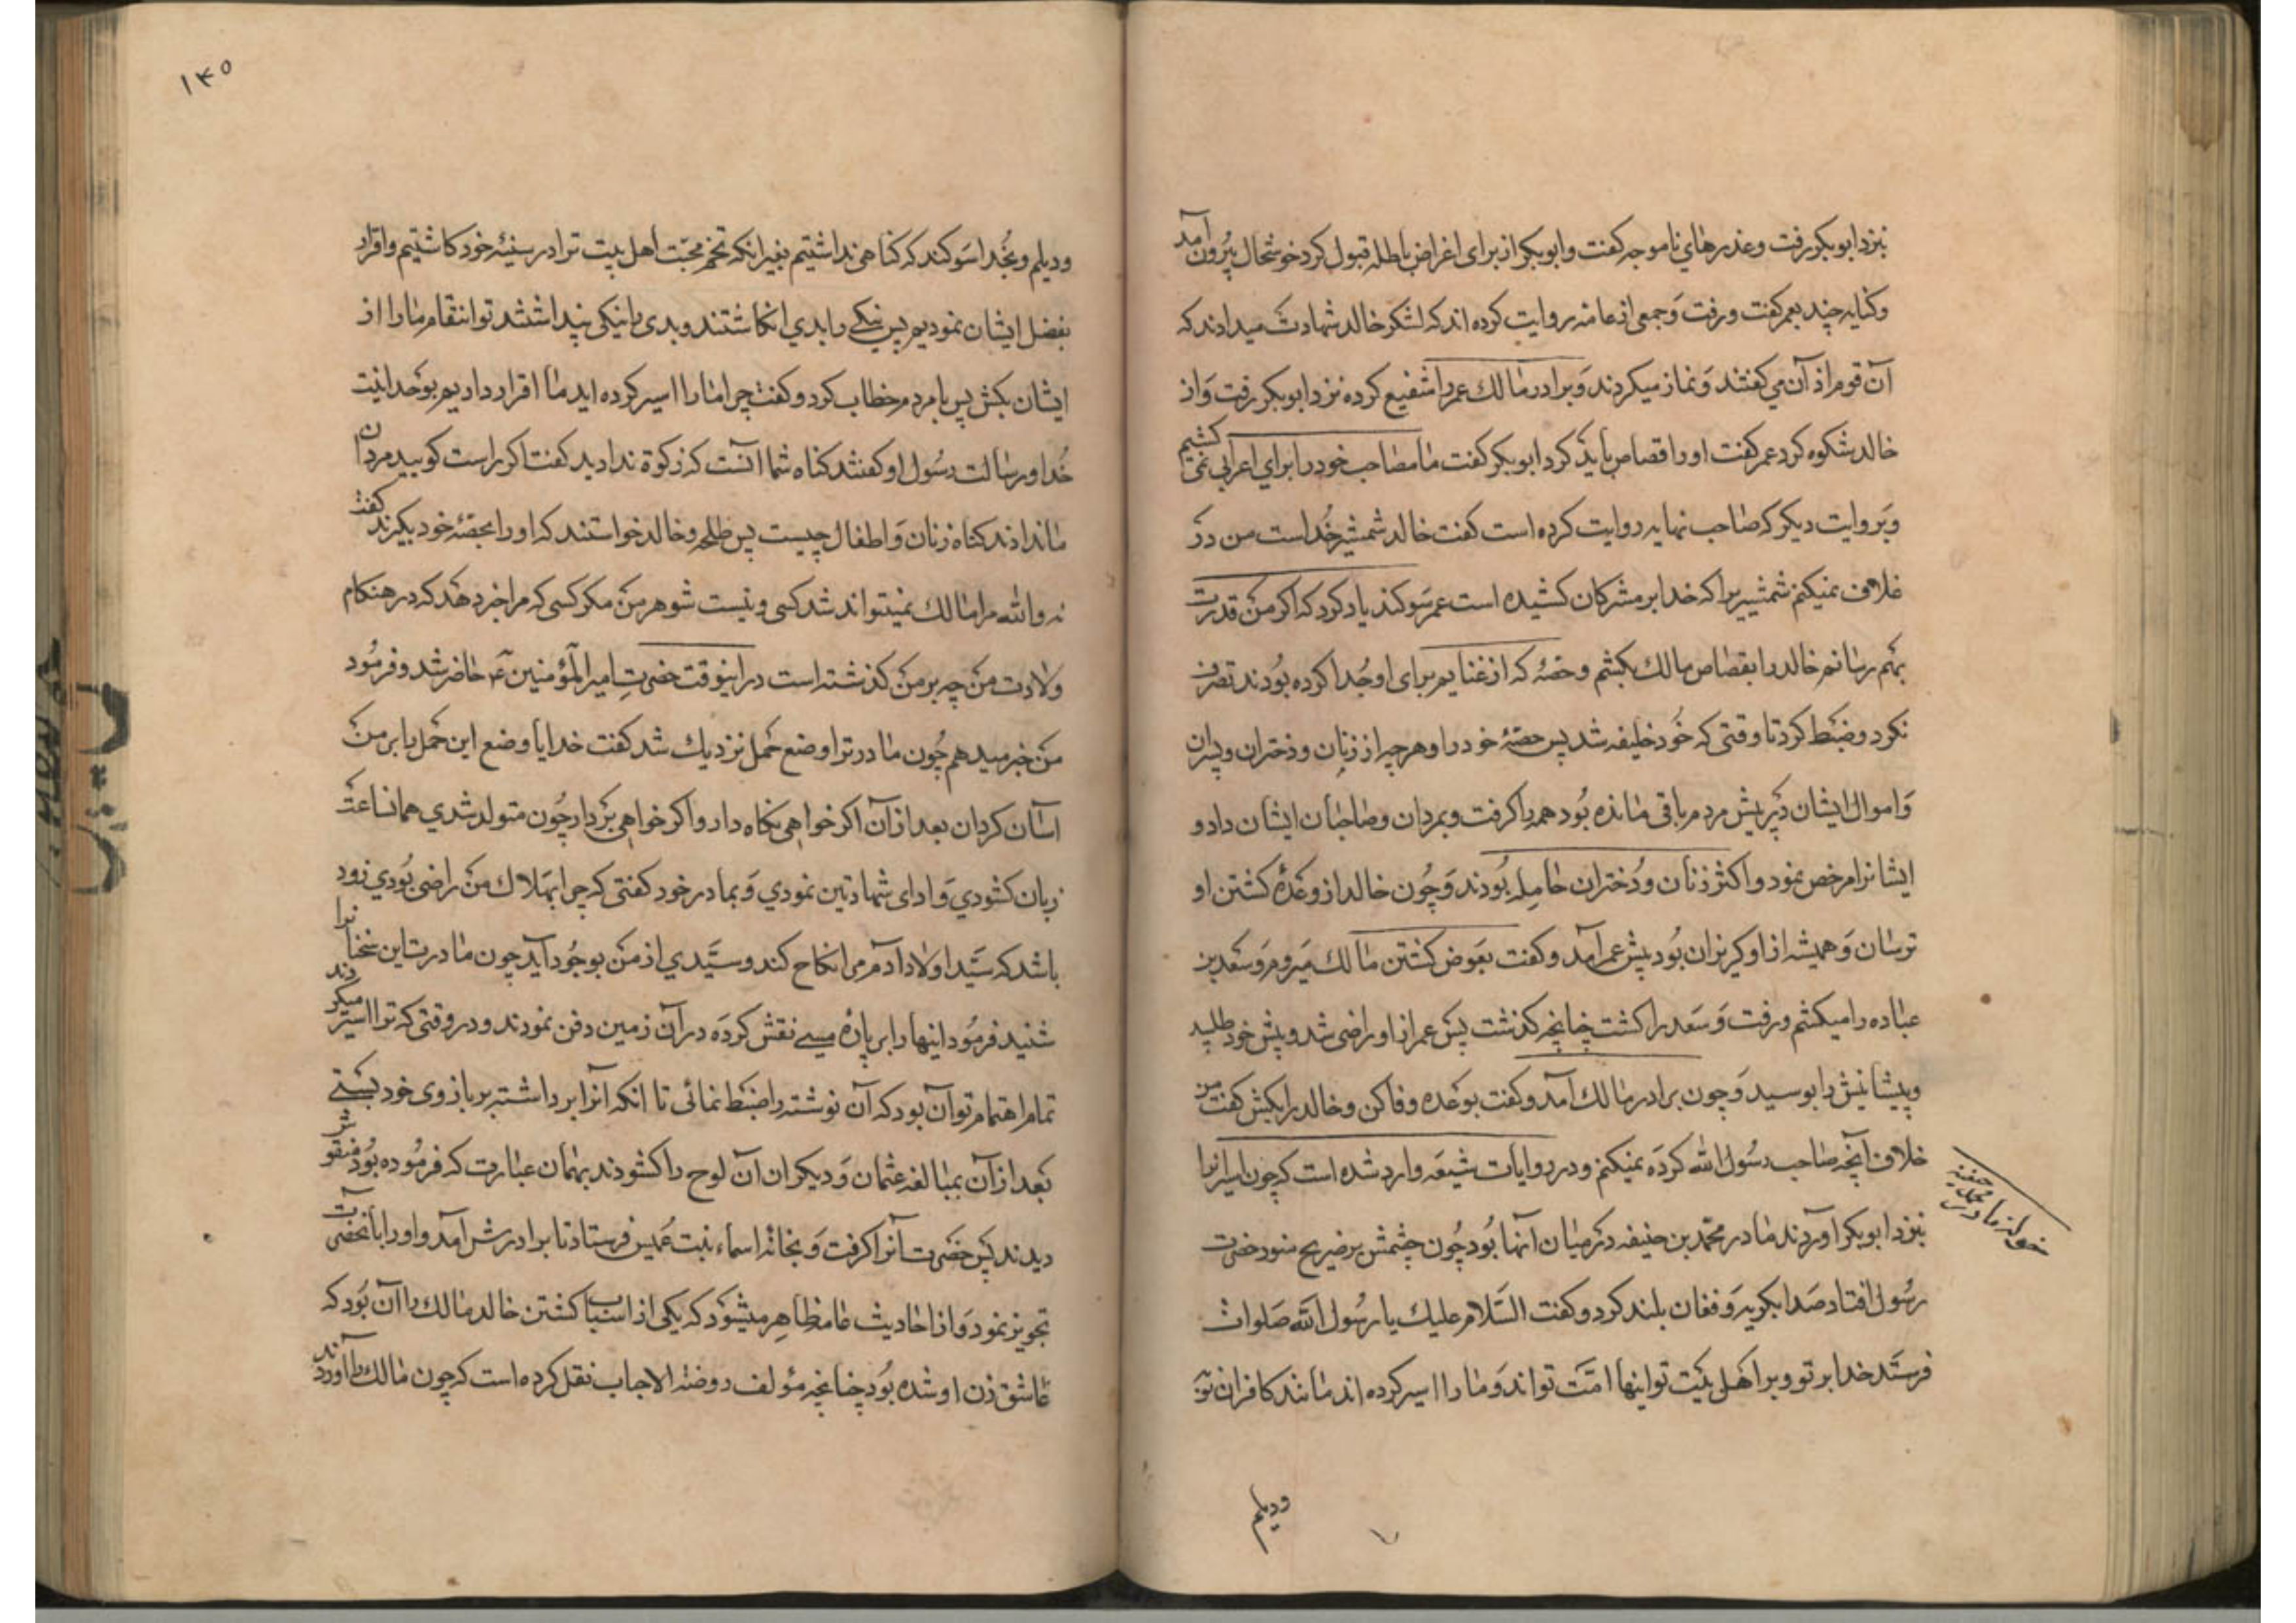 بنزد ابوبکر رفت و عذرهای ناموجه کفت و ابوبکر از برای اغراض باطله قبول کرد خوشحال بیرون آمد
و کنایه چند بعمر کفت و رفت و جمعی از عامه روایت کرده اند که لشکر خالد شهادت میدادند که
آن قوم اذان می کفتند و نماز میکردند و برادر مالک عمر را شفیع کرده نزد ابوبکر رفت و از
خالد شکوه کرد عمر کفت او را قصاص باید کرد ابوبکر کفت ما مصاحب خود را برای اعرابی نمی کشیم
و بروایت دیکر که صاحب نهایه روایت کرده است کفت خالد شمشیر خداست من در
غلاف نمیکنم شمشیریرا که خدا بر مشرکان کشیده است عمر سوکند یاد کرد که اکر من قدرت
بهم رسانم خالد را بقصاص مالک بکشم و حصهٔ که از غنایم برای او جدا کرده بودند تصرف
نکرد و ضبط کرد تا وقتی که خود خلیفه شد پس حصهٔ خود را و هر چه از زنان و دختران و پسران
و اموال ایشان در پیش مردم باقی مانده بود همه را کرفت و بمردان و صاحبان ایشان داد و
ایشانرا مرخص نمود و اکثر زنان و دختران حامله بودند و چون خالد از وعدهٔ کشتن او
ترسان و همیشه از او کریزان بود پیش عمر آمد و کفت بعوض کشتن مالک میروم و سعد بن
عباده را میکشم و رفت و سعد را کشت چنانچه کذشت پس عمر از او راضی شد و پیش خود طلبید
و پیشانیش را بوسید و چون برادر مالک آمد و کفت بوعده وفا کن و خالد را بکش کفت من
خلاف آنچه صاحب رسول الله کرده نمیکنم و در روایات شیعه وارد شده است که چون اسیرانرا
بنزد ابوبکر آوردند مادر محمد بن حنیفه در میان آنها بود چون چشمش بر ضریح منور حضرت
رسول افتاد صدا بکریه و فغان بلند کرد و کفت السلام علیک یا رسول الله صلوات
فرستد خدا بر تو و بر اهل بیت تو اینها امت تو اند و ما را اسیر کرده اند مانند کافران نوبه
حنفیه
مادر
ودیلم
١٤٥
و دیلم و بخدا سوکند که کناهی نداشتیم بغیر انکه تخم محبت اهل بیت ترا در سینهٔ خود کاشتیم و اقرار
بفضل ایشان نمودیم پس نیکی را بدی انکاشتند و بدی را نیکی پنداشتند تو انتقام ما را از
ایشان بکش پس با مردم خطاب کرد و کفت چرا ما را اسیر کرده اید ما اقرار داریم بوحدانیت
خدا و رسالت رسول او کفتند کناه شما آنست که زکوة ندادید کفت اکر راست کویید مردان
ما نداذند کناه زنان و اطفال چیست پس طلحه و خالد خواستند که او را بحصهٔ خود بکیرند کفت
نه والله مرا مالک نمیتواند شد کسی و نیست شوهر من مکر کسی که مرا خبر دهد که در هنکام
ولادت من چه بر من کذشته است در اینوقت حضرت امیر المؤمنین ع حاضر شد و فرمود
من خبر میدهم چون مادر ترا وضع حمل نزدیک شد کفت خدایا وضع این حمل را بر من
آسان کردان بعد از آن اکر خواهی نکاه دار و اکر خواهی بردار چون متولد شدی همانساعت
زبان کشودی و ادای شهادتین نمودی و بمادر خود کفتی که چرا بهلاک من راضی بودی زود
باشد که سید اولاد آدم مرا نکاح کند و سیدی از من بوجود آید چون مادرت این سخنانرا
شنید فرمود اینها را بر پارهٔ مسی نقش کرده در آن زمین دفن نمودند و در وقتی که ترا اسیر میکردند
تمام اهتمام تو آن بود که آن نوشته را ضبط نمائی تا انکه آنرا برداشته بر بازوی خود بستی
بعد از آن بمبالغه عثمان و دیکران آن لوح را کشودند بهمان عبارت که فرموده بود منقوش
دیدند پس حضرت آنرا کرفت و بخانهٔ اسماء بنت عمیس فرستاد تا برادرش آمد و او را بآنحضرت
تجویز نمود و از احادیث عامه ظاهر میشود که یکی از اسباب کشتن خالد مالک را آن بود که
عاشق زن او شده بود چنانچه مؤلف روضة الاحباب نقل کرده است که چون مالک را آوردند